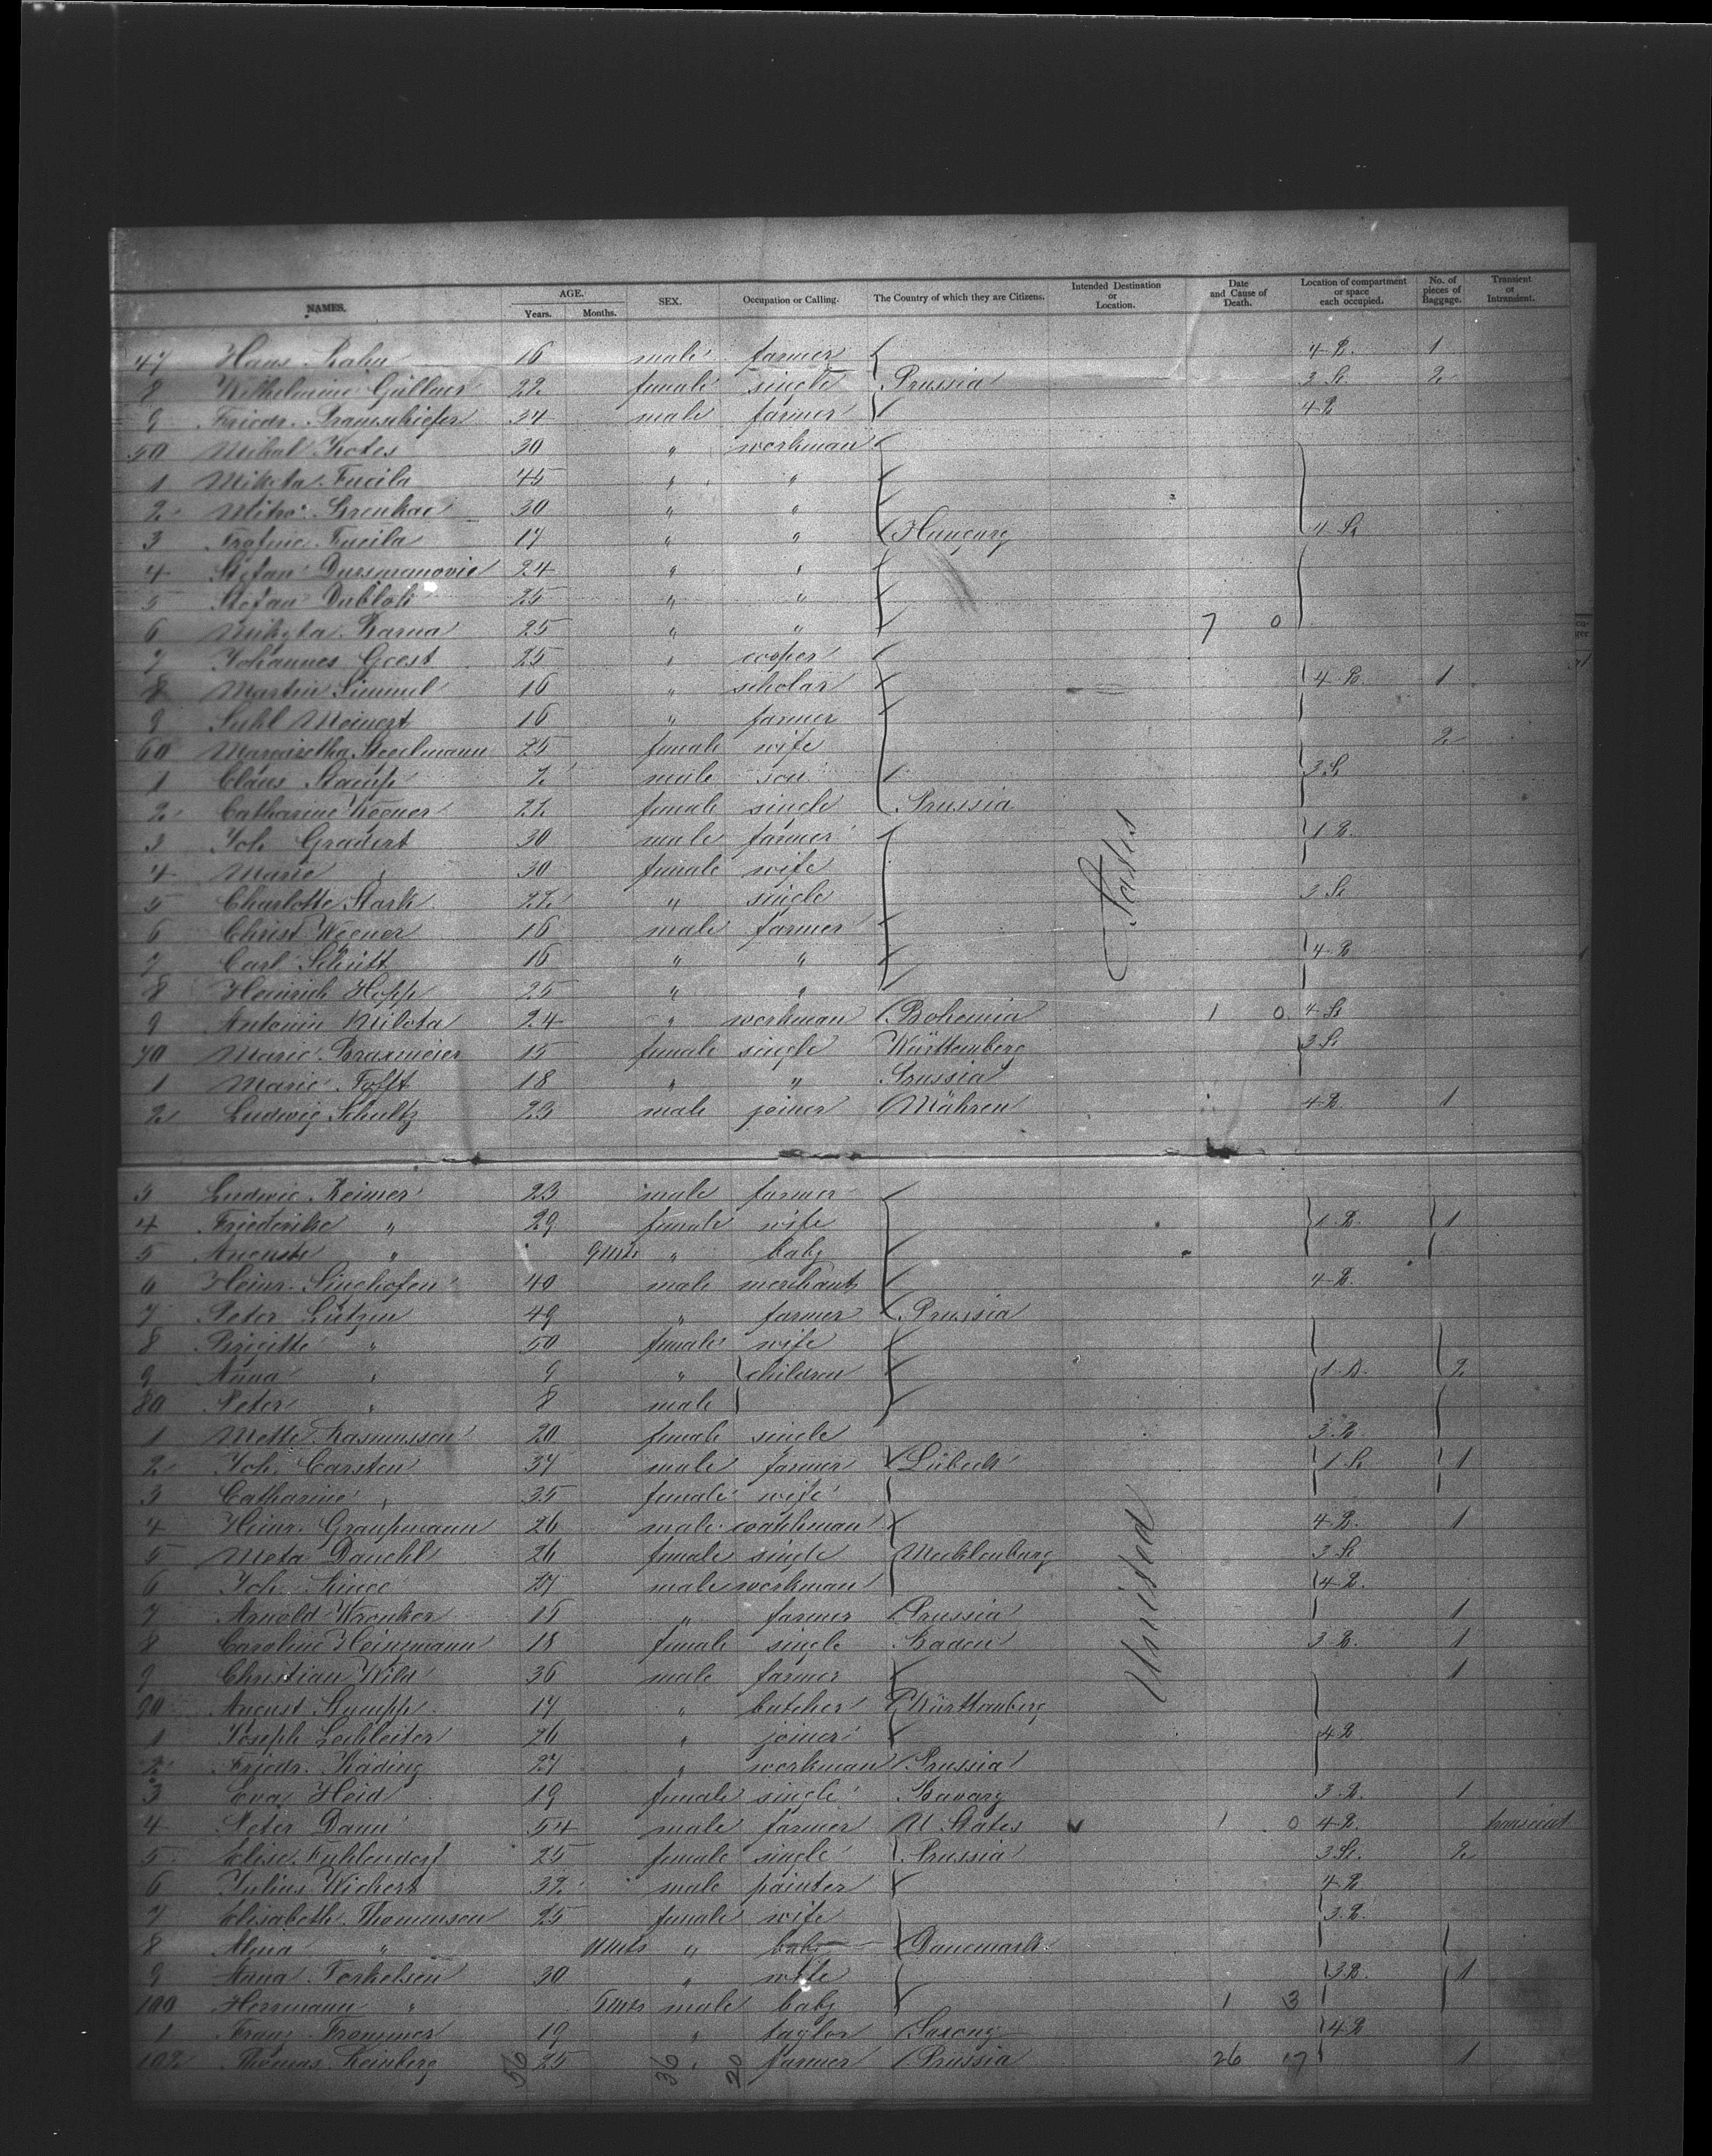 NAMES. AGE. Years. Months. SEX. Occupation or Calling. The Country of which they are Citizens. Intended Destination or Location. Date and Cause of Death. Location of compartment or space each occupied. No. of pieces of Baggage. Transient or Intransient.
47 Hans Rahn 16 male farmer 4 B. 1
8 Wilhelmine Güllner 22 female single Prussia 3 St 2
9 Friedr. 34 male farmer 4 B
50 Mihal Kotes 30 " workman
1 Mikita Fucila 45 " "
2 Mitro 30 " "
3 Fucila 17 " " Hungary 4 St
4 Stefan 24 " "
5 Stefan 25 " "
6 Mikyta Barna 25 " " 7 0
7 Johannes Goest 25 " cooper
8 Martin Simmel 16 " scholar 4 B. 1
9 Suhl Meinert 16 " farmer
60 Margaretha 25 female wife 2
1 Claus Stamp 2 male son 3 St
2 Catharine 22 female single Prussia
3 Joh. Gradert 30 male farmer 1 B.
4 Marie " 30 female wife
5 Charlotte Stark 22 " single 3 St
6 Christ. Wegner 16 male farmer
7 Carl Schütt 16 " " 4 B
8 Heinrich Hopp 25 " "
9 Antonin Nikota 24 " workman Bohemia 1 0 4 St
70 Marie Braxmeier 15 female single Württemberg 3 St
1 Marie Tofft 18 " " Prussia
2 Ludwig Schultz 23 male joiner Mähren 4 B 1
3 Ludwig Reimer 23 male farmer
4 Friederike " 29 female wife 1 B. 1
5 Auguste " 9 mts " baby
6 Heinr. 40 male merchant 4 B.
7 Peter Lützen 49 " farmer Prussia
8 Brigitte " 50 female wife
9 Anna " 9 " children 1 B. 2
80 Peter " 8 male
1 Mette Rasmussen 20 female single 3 B
2 Joh. Carsten 37 male farmer Lübeck 1 St 1
3 Catharine " 35 female wife
4 Heinr. Graupmann 26 male 4 B. 1
5 Meta 26 female single Mecklenburg 3 St
6 Joh. 27 male workman 4 B.
7 Arnold 15 " farmer Prussia 1
8 Caroline Heinzmann 18 female single Baden 3 B. 1
9 Christian Wild 36 male farmer 1
90 August 17 " butcher Württemberg
1 Joseph Lechleiter 26 " joiner 4 B
2 Friedr. Käding 27 " workman Prussia
3 Eva Heid 19 female single Bavary 3 B. 1
4 Peter Damm 54 male farmer U States 1 0 4 B. transient
5 Elise Fuhlendorf 25 female single Prussia 3 St. 2
6 Julius Wichert 32 male painter 4 B
7 Elisabeth Thomensen 25 female wife 3 B.
8 " 11 mts " baby Danemark
9 Anna Torkelsen 30 " wife 3 B. 1
100 Herrmann " male baby 1 3
1 Franz Frommer 19 " taylor Saxony 4 B
102 Thomas Leinberg 25 " farmer Prussia 26 17 1
56 36 20
United States